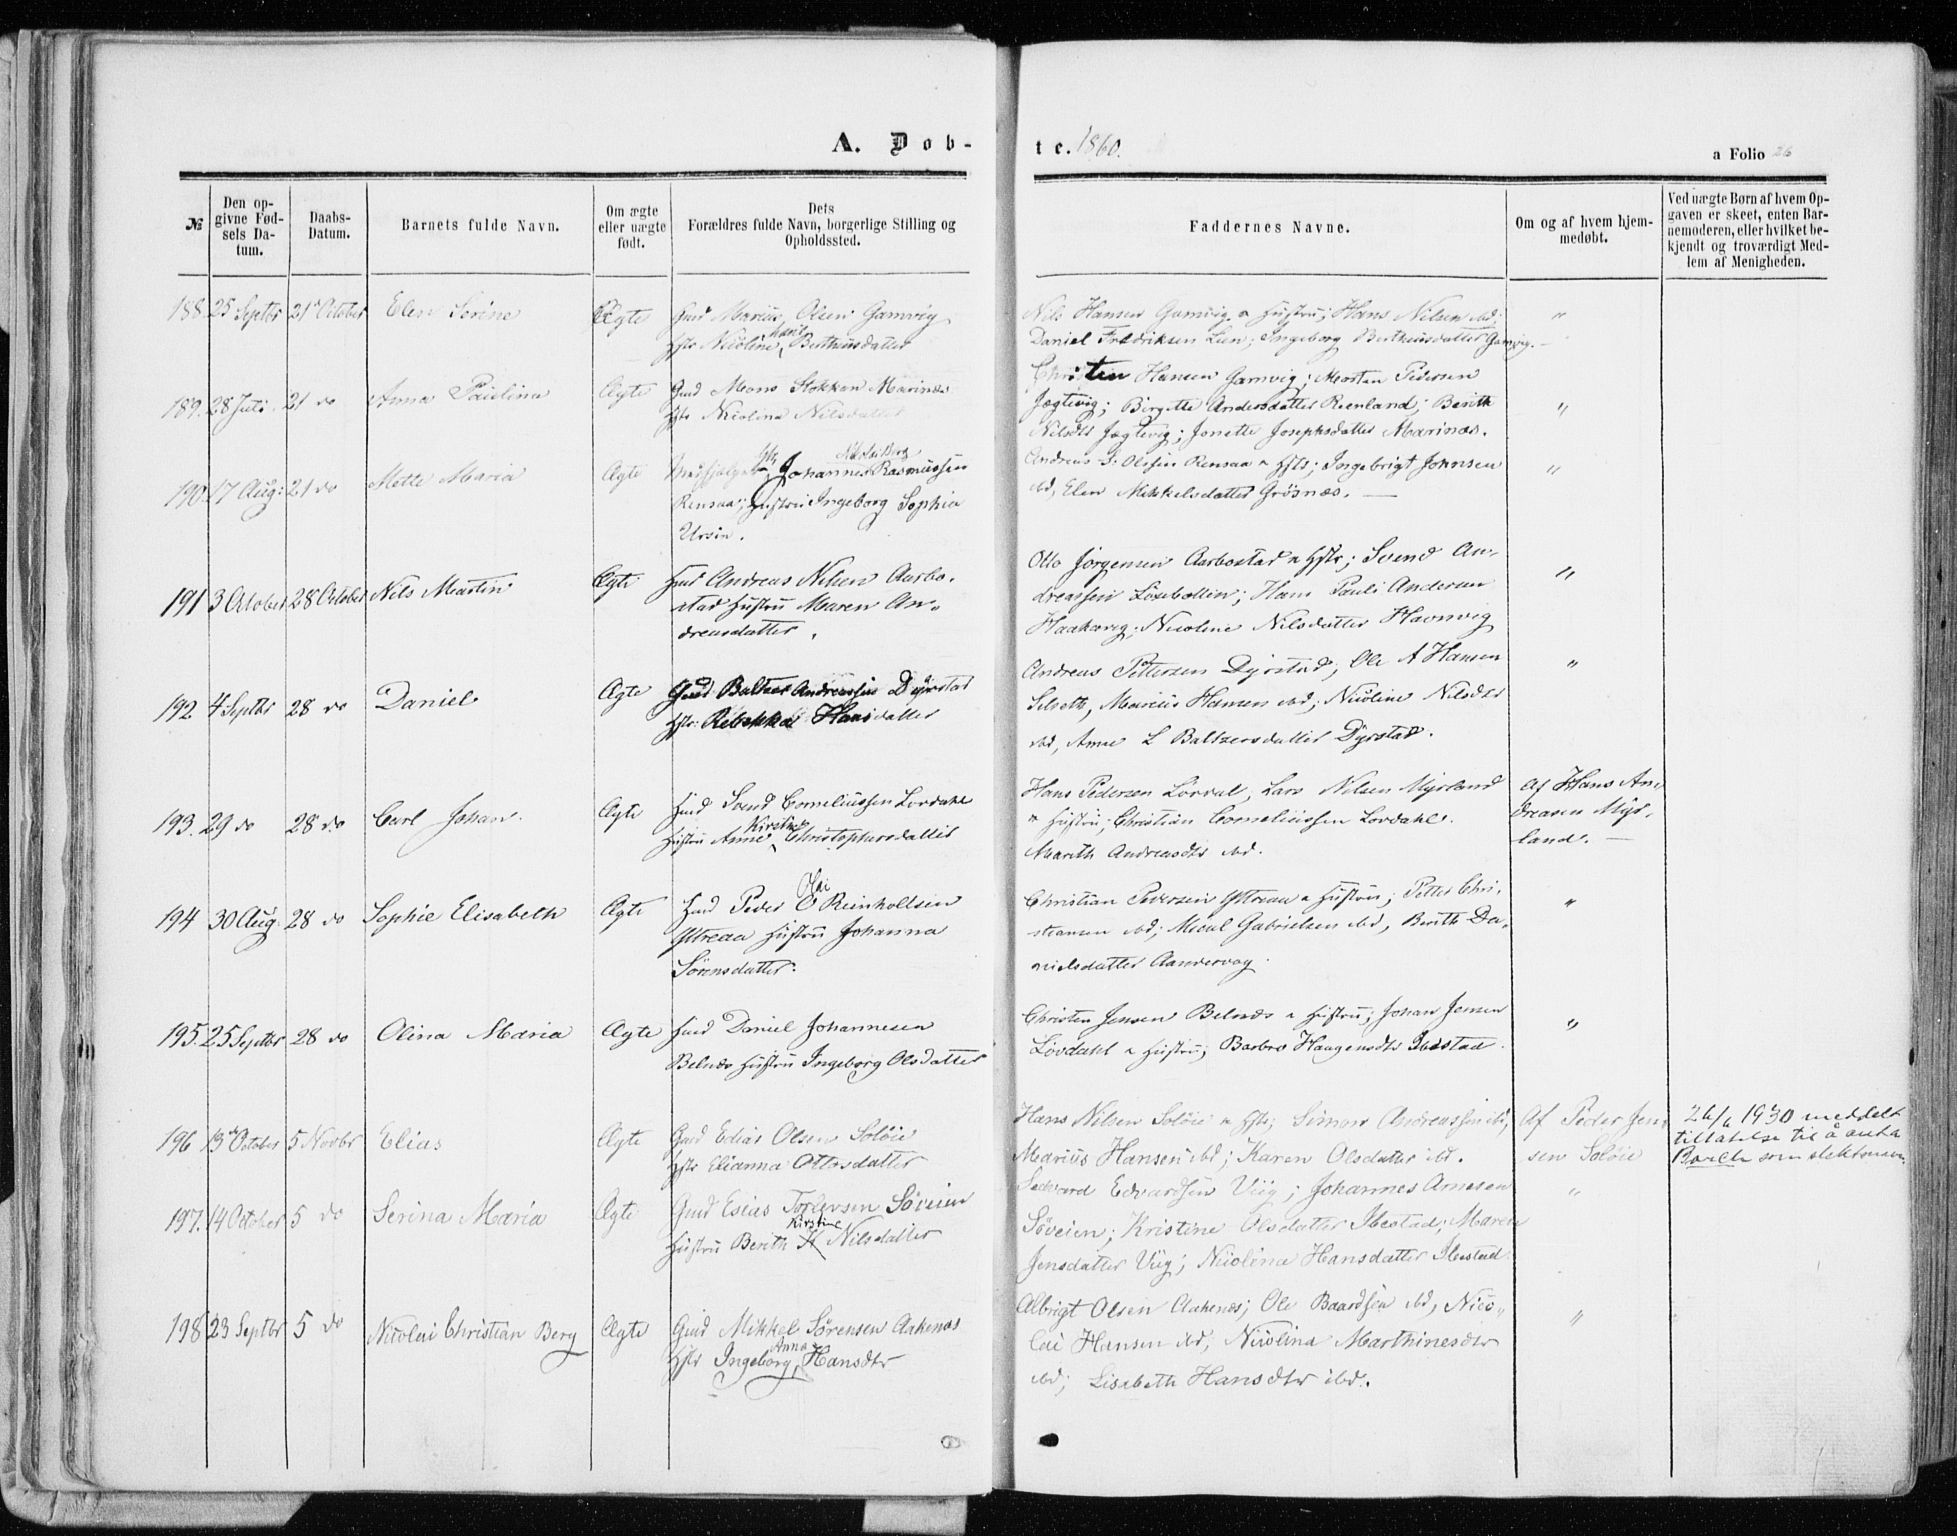 A. Dob-
te. 1860.
a Folio 26
№
Den opgivne Fødsels Datum.
Daabs-Datum.
Barnets fulde Navn.
Om ægte eller uægte født.
Dets Forældres fulde Navn, borgerlige Stilling og Opholdssted.
Faddernes Navne.
Om og af hvem hjemmedøbt.
Ved uægte Børn af hvem Opgaven er skeet, enten Barnemoderen, eller hvilket bekjendt og troværdigt Medlem af Menigheden.
188. 25 Septbr 21 October Elen Serine Ægte Gmd Marius Olsen Gamvig
Hstr Nicoline Marit Bertheusdatter
Nils Hansen Gamvig & Hustru; Hans Nilsen ibd; "
Daniel Fredriksen Lien; Ingeborg Bertheusdatter Gamvig.
189. 28 Juli. 21 do Anna Paulina Ægte Gmd Mons Stokken Marinæs
Hstr Nicolina Nilsdatter
Christen Hansen Gamvig; Morten Pedersen
Jægtevig; Birgitte Andersdatter Reenland; Berith "
Nilsdtr Jægtevig; Jonette Josephsdatter Marinæs.
190. 17 Aug: 21 do Mette Maria Ægte Johannes Nicolai Berg Rasmussen
Rensaa; Hustru Ingeborg Sophia
Ursin.
Andreas J. Olssen Rensaa & Hstr; Ingebrigt Johnsen "
ibd, Elen Mikkelsdatter Grøsnæs.
191 3 October 28 October Nils Martin Ægte Huud Andreas Nilsen Aarbo-
stad Hustru Maren An-
dreasdatter.
Otto Jørgensen Aarbostad & Hstr; Svend An- "
dreassen Løsebollen; Hans Pauli Andersen
Haakavig; Nicoline Nilsdatter Havnvig
192 4 Septbr 28 do Daniel Ægte Gmd Baltzer Andreassen Dyrstad
Hstr: Rebekka Hansdatter
Andreas Pettersen Dyrstad; Ole A Hansen "
Selseth, Marius Hansen ibd; Nicoline Nilsdtr
ibd, Anne L Baltzersdatter Dyrstad.
193. 29 do 28 do Carl Johan. Ægte Huud Svend Corneliussen Lovdahl
Hustru Anne Kirstine Christophersdatter
Hans Pedersen Lovdal, Lars Nilsen Myrland Af Hans An-
& Hustru; Christian Corneliussen Lovdahl. dreasen Myr-
Marith Andreasdtr ibd. land.
194 30 Aug. 28 do Sophie Elisabeth Ægte Huud Peder Olai Reinholtsen
Ytreaa Hustru Johanna
Sørensdatter.
Christian Pedersen Ytreaa & Hustru; Petter Chri- "
stiansen ibd; Mical Gabrielsen ibd, Berith Da-
nielsdatter Aandervag.
195. 25 Septbr 28 do Olina Maria Ægte Huud Daniel Johannesen
Belnæs Hustru Ingeborg Olsdatter
Christen Jensen Belnæs & Hustru; Johan Jensen "
Løvdahl & Hustru; Barbro Haagensdtr Ibestad.
196 13 October 5 Novbr Elias Ægte Gmd Edias Olsen Soløie
Hstr Elianna Ottosdatter
Hans Nilsen Soløie & Hstr; Simon Andreassen ibd; Af Peder Jen-
Marius Hansen ibd; Karen Olsdatter ibd. sen Soløie
26/6 1930 meddelt
tillatelse til å anta
som slektsnavn.
197. 14 October 5 do Serina Maria Ægte Gmd Esias Torlevsen Søveien
Hustru Berith Kirstine Nilsdatter
Sedvard Edvardsen Viig; Johannes Arnesen "
Søveien; Kristine Olsdatter Ibestad; Maren
Jensdatter Viig; Nicolina Hansdatter Ibestad.
198 23 Septbr 5 do Nicolai Christian Berg Ægte Gmd Mikkel Sørensen Aakenæs
Hstr Ingeborg Anna Hansdtr
Albrigt Olsen Aakenæs; Ole Baardsen ibd, Nico- "
lai Hansen ibd, Nicolina Marthinesdtr
ibd; Lisabeth Hansdtr ibd.